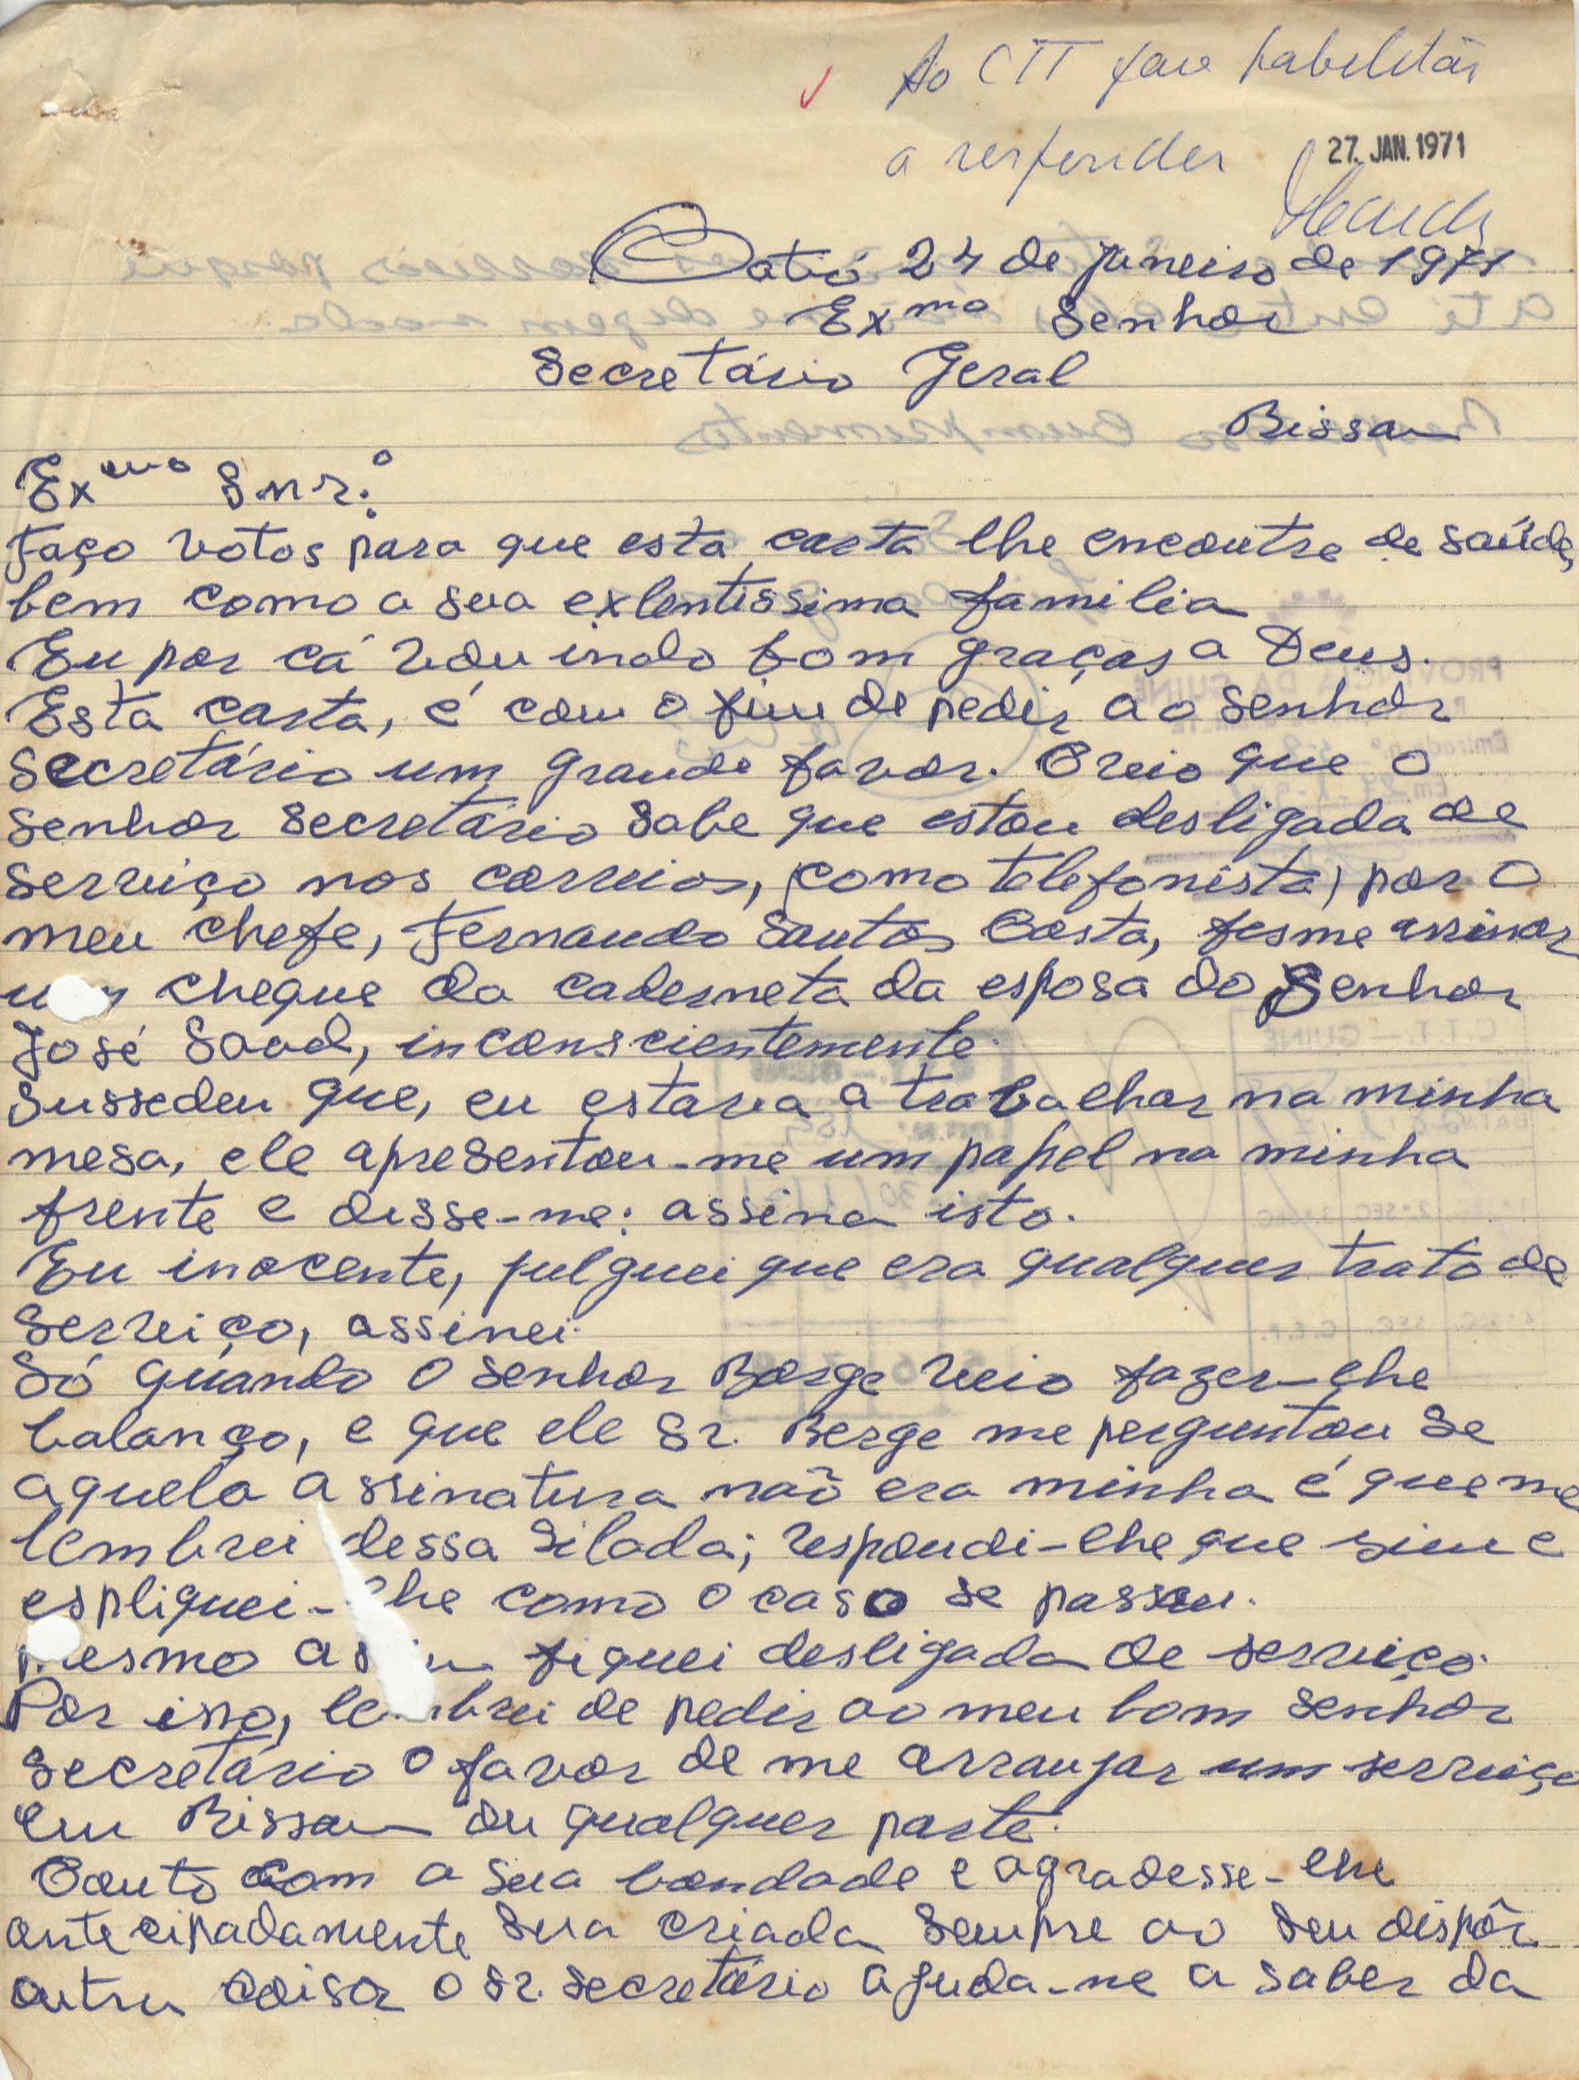 Ao CTT para habilitar
a responder 27. JAN. 1971
Catió 24 de Janeiro de 1971
Exmo Senhor
Secretário Geral
Bissau
Exmo Snr.º
Faço votos para que esta carta lhe encontre de saúde,
bem como a sua exlentissima familia
Eu por cá vou indo bom graças a Deus.
Esta carta, é com o fim de pedir ao senhor
secretário um grande favor. Creio que o
senhor secretário sabe que estou desligada de
serviço nos correios, (como telefonista) por o
meu chefe, Fernando Santos Costa, fesme assinar
um cheque da caderneta da esposa do Senhor
José Saad, inconscientemente.
Sussedeu que, eu estava a trabalhar na minha
mesa, ele apresentou-me um papel na minha
frente e disse-me: assina isto.
Eu inocente, julguei que era qualquer trato de
serviço, assinei.
Só quando o senhor Borge veio fazer-lhe
balanço, e que ele Sr. Berge me perguntou se
aquela assinatura não era minha é que me
lembrei dessa silada; respondi-lhe que sim e
espliquei-lhe como o caso se passou.
Mesmo assim fiquei desligada de serviço.
Por isso, lembrei de pedir ao meu bom senhor
secretário o favor de me arranjar um serviço
em Bissau ou qualquer parte.
Conto com a sua bondade e agradesse-lhe
antecipadamente sua criada sempre ao seu dispôr.
outra coisa o sr. secretário ajuda-me a saber da